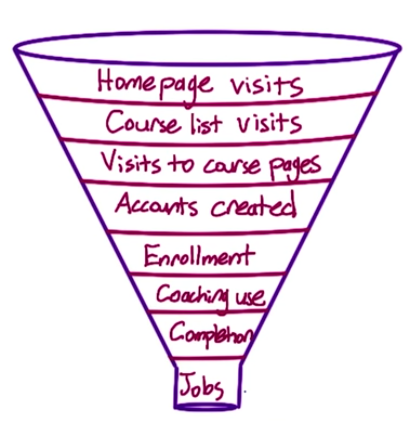 Homepage visits
Course list visits
Visits to course pages
Accounts created
Enrollment
Coaching use
Completion
Jobs